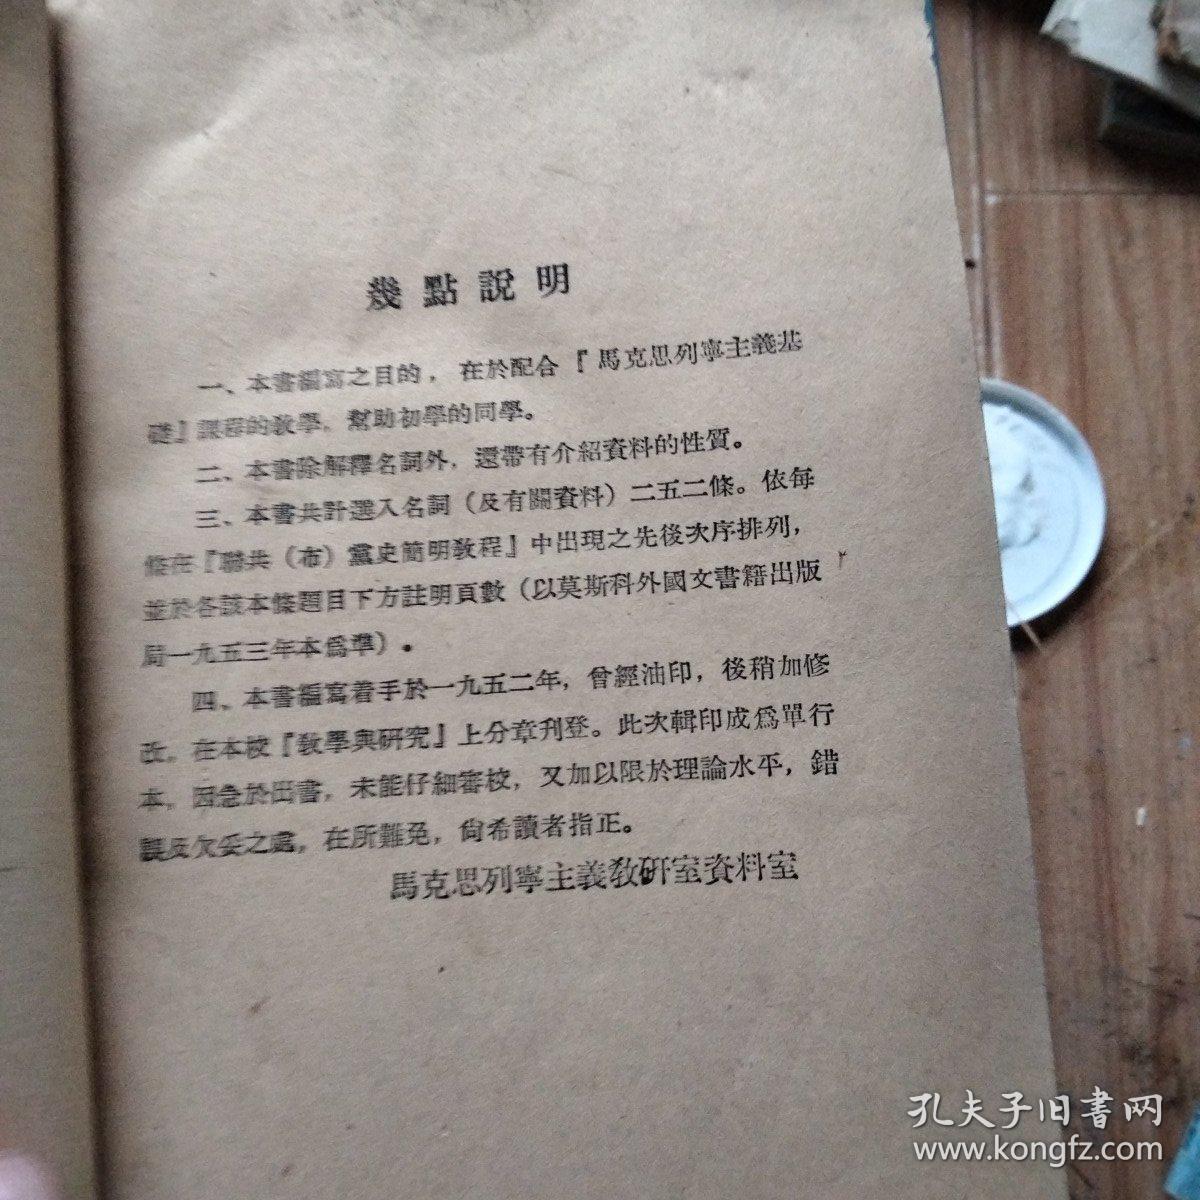 幾點說明
一、本書編寫之目的，在於配合『馬克思列寧主義基
礎』課程的教學，幫助初學的同學。
二、本書除解釋名詞外，還帶有介紹資料的性質。
三、本書共計選入名詞（及有關資料）二五二條。依每
條在『聯共（布）黨史簡明教程』中出現之先後次序排列，
並於各該本條題目下方註明頁數（以莫斯科外國文書籍出版
局一九五三年本爲準）。
四、本書編寫着手於一九五二年，曾經油印，後稍加修
改，在本校『教學與研究』上分章刊登。此次輯印成爲單行
本，因急於出書，未能仔細審校，又加以限於理論水平，錯
誤及欠妥之處，在所難免，尙希讀者指正。
馬克思列寧主義教研室資料室
孔夫子旧書网
www.kongfz.com